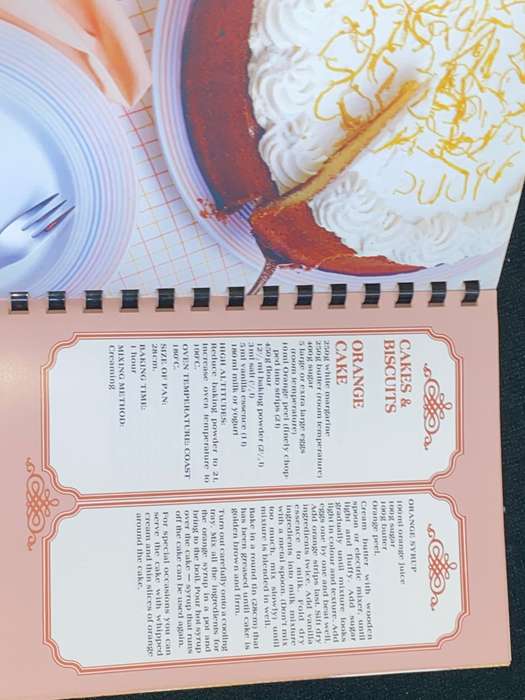 CAKES &
BISCUITS
ORANGE
CAKE
250g white margarine
250g butter (room temperature)
400g sugar
5 large or extra large eggs
(room temperature)
10ml Orange peel (finely chop
peel into strips (2 t)
450g flour
12½ ml baking powder (2½ t)
3 ml salt
5 ml vanilla essence (1 t)
180 ml milk or yogurt
HIGH ALTITUDES:
Reduce baking powder to 2t.
Increase oven temperature to
190°C.
OVEN TEMPERATURE: COAST
180°C.
SIZE OF PAN:
28cm.
BAKING TIME:
1 hour
MIXING METHOD:
Creaming.
ORANGE SYRUP
100ml orange juice
100g sugar
100g butter
Orange peel.
Cream butter with wooden
spoon or electric mixer, until
light and fluffy. Add sugar
gradually until mixture looks
light in colour and texture. Add
eggs one by one and beat well.
Add orange strips last. Sift dry
ingredients twice. Add vanilla
essence to milk. Fold dry
ingredients into milk mixture
with a metal spoon. (Don't mix
too much, mix slowly) until
mixture is blended in well.
Bake in a round tin (28cm) that
has been greased until cake is
golden brown and firm.
Turn out carefully onto a cooling
tray. Mix all the ingredients for
the orange syrup in a pot and
bring to the boil. Pour hot syrup
over the cake — syrup that runs
off the cake can be used again.
For special occasions you can
serve the cake with whipped
cream and thin slices of orange
around the cake.